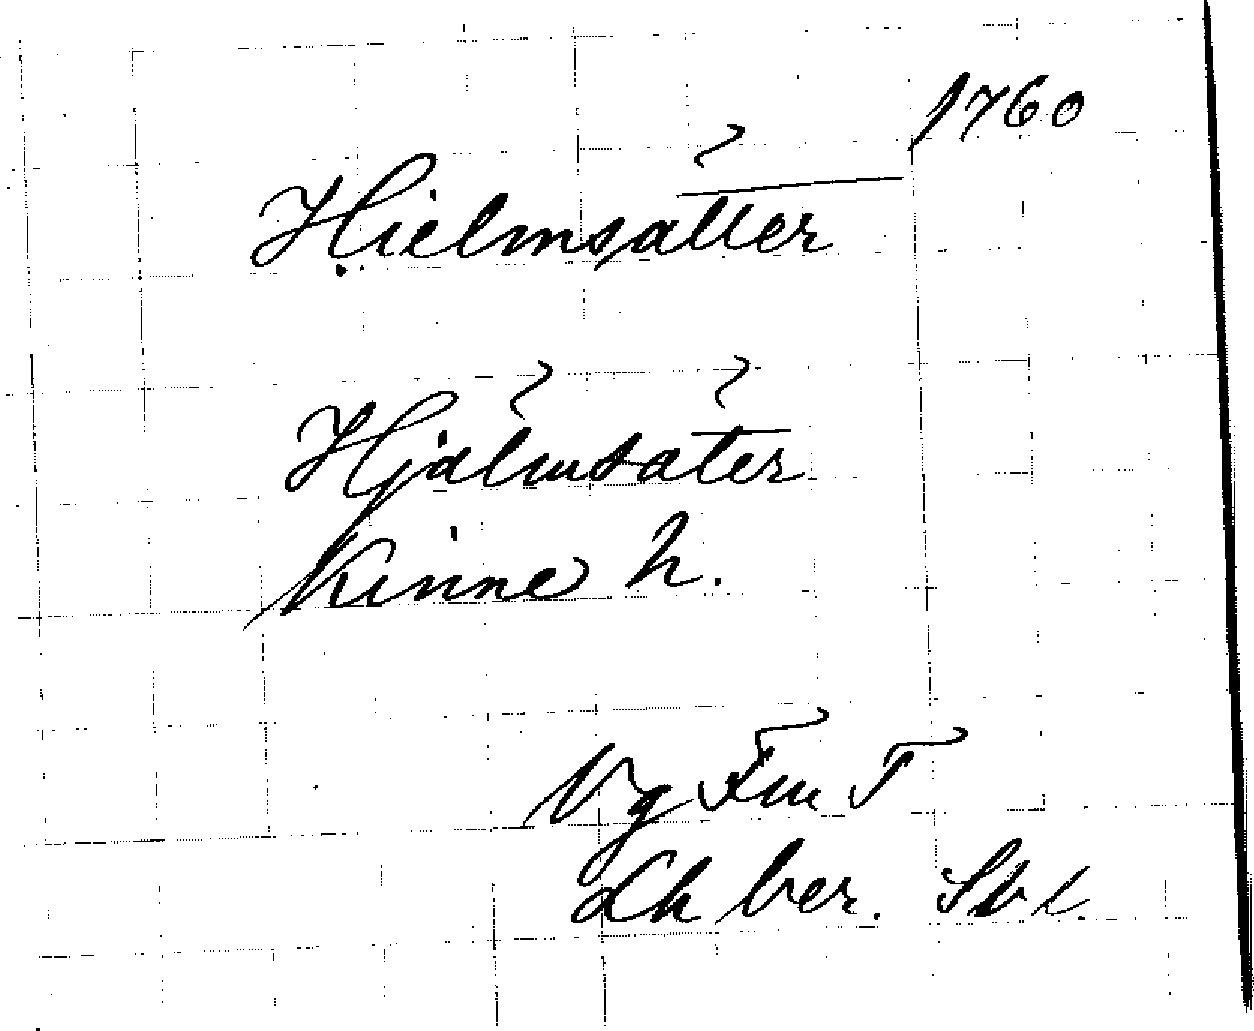 1760
Hielmsätter
Hjälmsäter
Kinne h.
Vg Fm T
Lh ber. Skl.